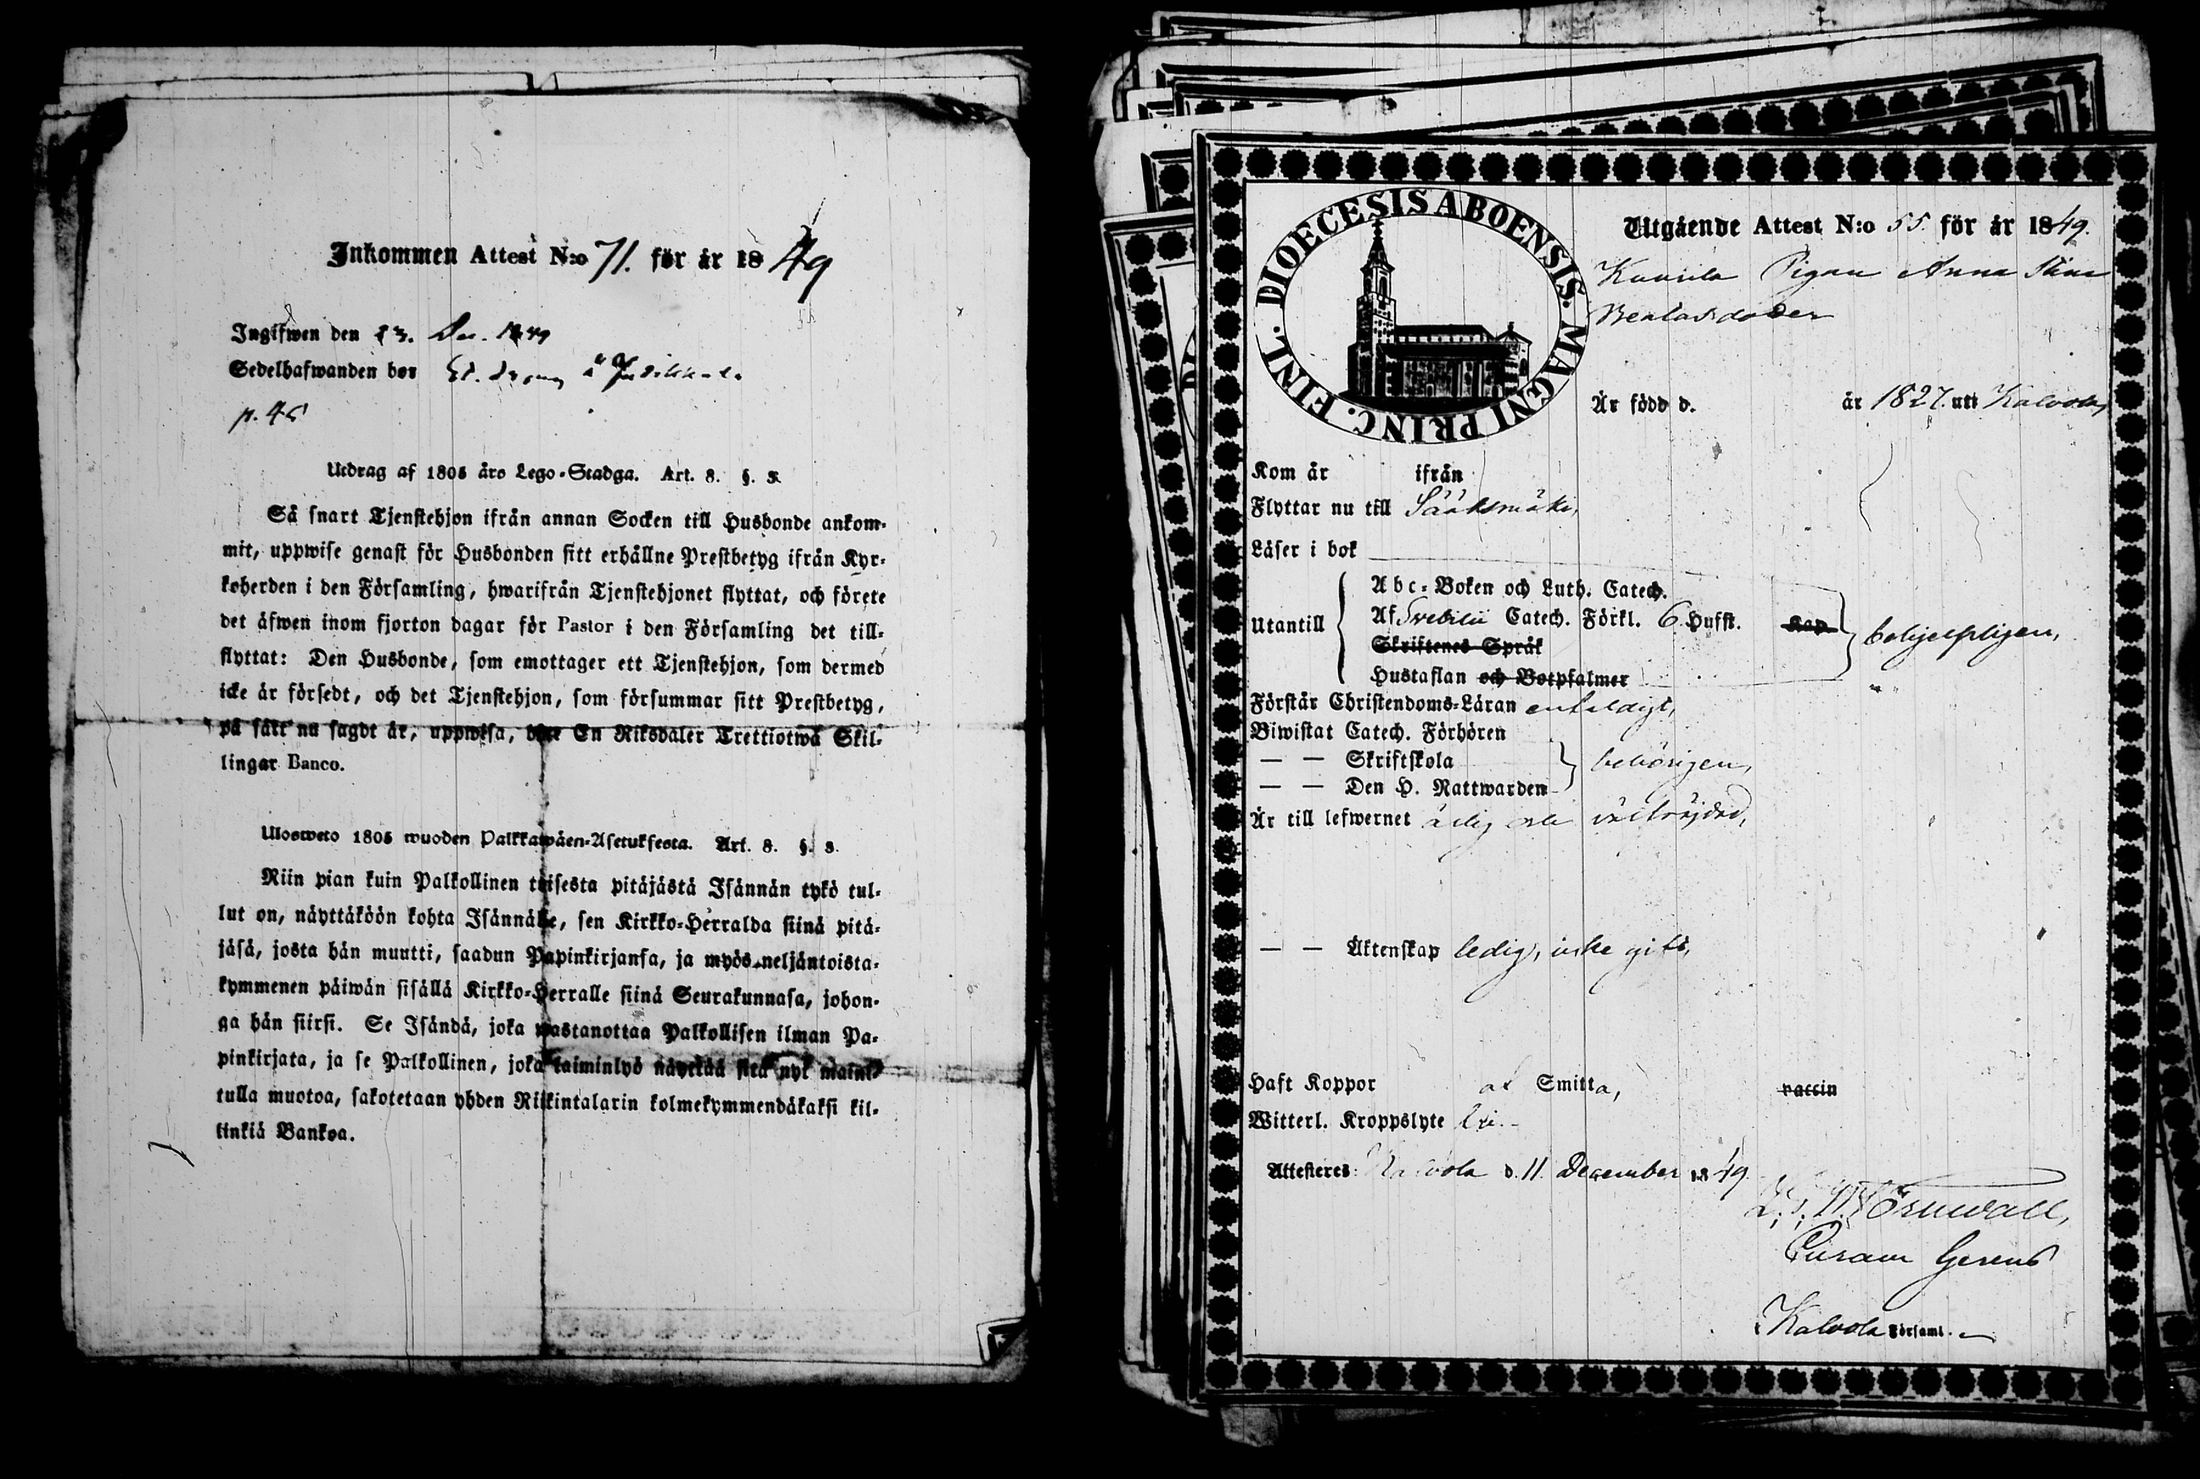 Inkommen Attest N:o 71. för år 1849
Ingifwen den 23. Dec. 1849
Sedelhafwanden bor
p. 45
Utdrag af 1805 års Lego-Stadga. Art. 8. §. 3.
Så snart Tjenstehjon ifrån annan Socken till Husbonde ankom-
mit, uppwise genast för Husbonden sitt erhållne Prestbetyg ifrån Kyr-
koherden i den Församling, hwarifrån Tjenstehjonet flyttat, och förete
det äfwen inom fjorton dagar för Pastor i den Församling det till-
flyttat: Den Husbonde, som emottager ett Tjenstehjon, som dermed
icke är försedt, och det Tjenstehjon, som försummar sitt Prestbetyg,
på sätt nu sagdt är, uppwisa, böte En Riksdaler Trettiotwå Skil-
lingar Banco.
Ulosweto 1805 wuoden Palkkawäen-Asetuksesta. Art. 8. §. 3.
Niin pian kuin Palkollinen toisesta pitäjästä Isännän tykö tul-
lut on, näyttäköön kohta Isännälle, sen Kirkko-Herralda siinä pitä-
jäsä, josta hän muutti, saadun Papinkirjansa, ja myös neljäntoista-
kymmenen päiwän sisällä Kirkko-Herralle siinä Seurakunnasa, johon-
ga hän siirsi. Se Isändä, joka wastanottaa Palkollisen ilman Pa-
pinkirjata, ja se Palkollinen, joka laiminlyö näyttää sitä nyt mainit-
tulla muotoa, sakotetaan yhden Riikintalarin kolmekymmendäkaksi kil-
linkiä Bankoa.
DIOECESIS ABOENSIS. MAGNI PRINC. FINL.
Utgående Attest N:o 55 för år 1849.
Pigan Anna Stina
Är född d. år 1827. uti Kalvola,
Kom år ifrån
Flyttar nu till Sääksmäki,
Läser i bok
Utantill
Abc-Boken och Luth. Catech.
Af Svebilii Catech. Förkl. 6. Hufst. Kap behjelpligen,
Skriftenes Språk
Hustaflan och Botpsalmer
Förstår Christendoms-Läran enfaldigt,
Biwistat Catech. Förhören
— — Skriftskola behörigen,
— — Den H. Nattwarden
Är till lefwernet ärlig och välfrejdad,
— — Äktenskap ledig, icke gift,
Haft Koppor af Smitta, vaccin
Witterl. Kroppslyte fri.
Attesteres Kalvola d. 11. December 1849
Curam Gerens
Kalvola Församl.